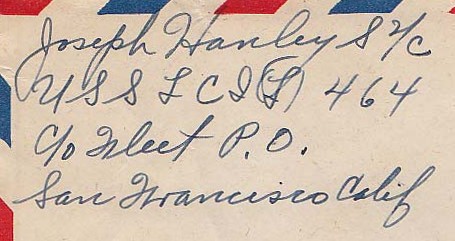 Joseph Hanley S 2/c
USS LCI(L) 464
c/o Fleet P.O.
San Francisco Calif